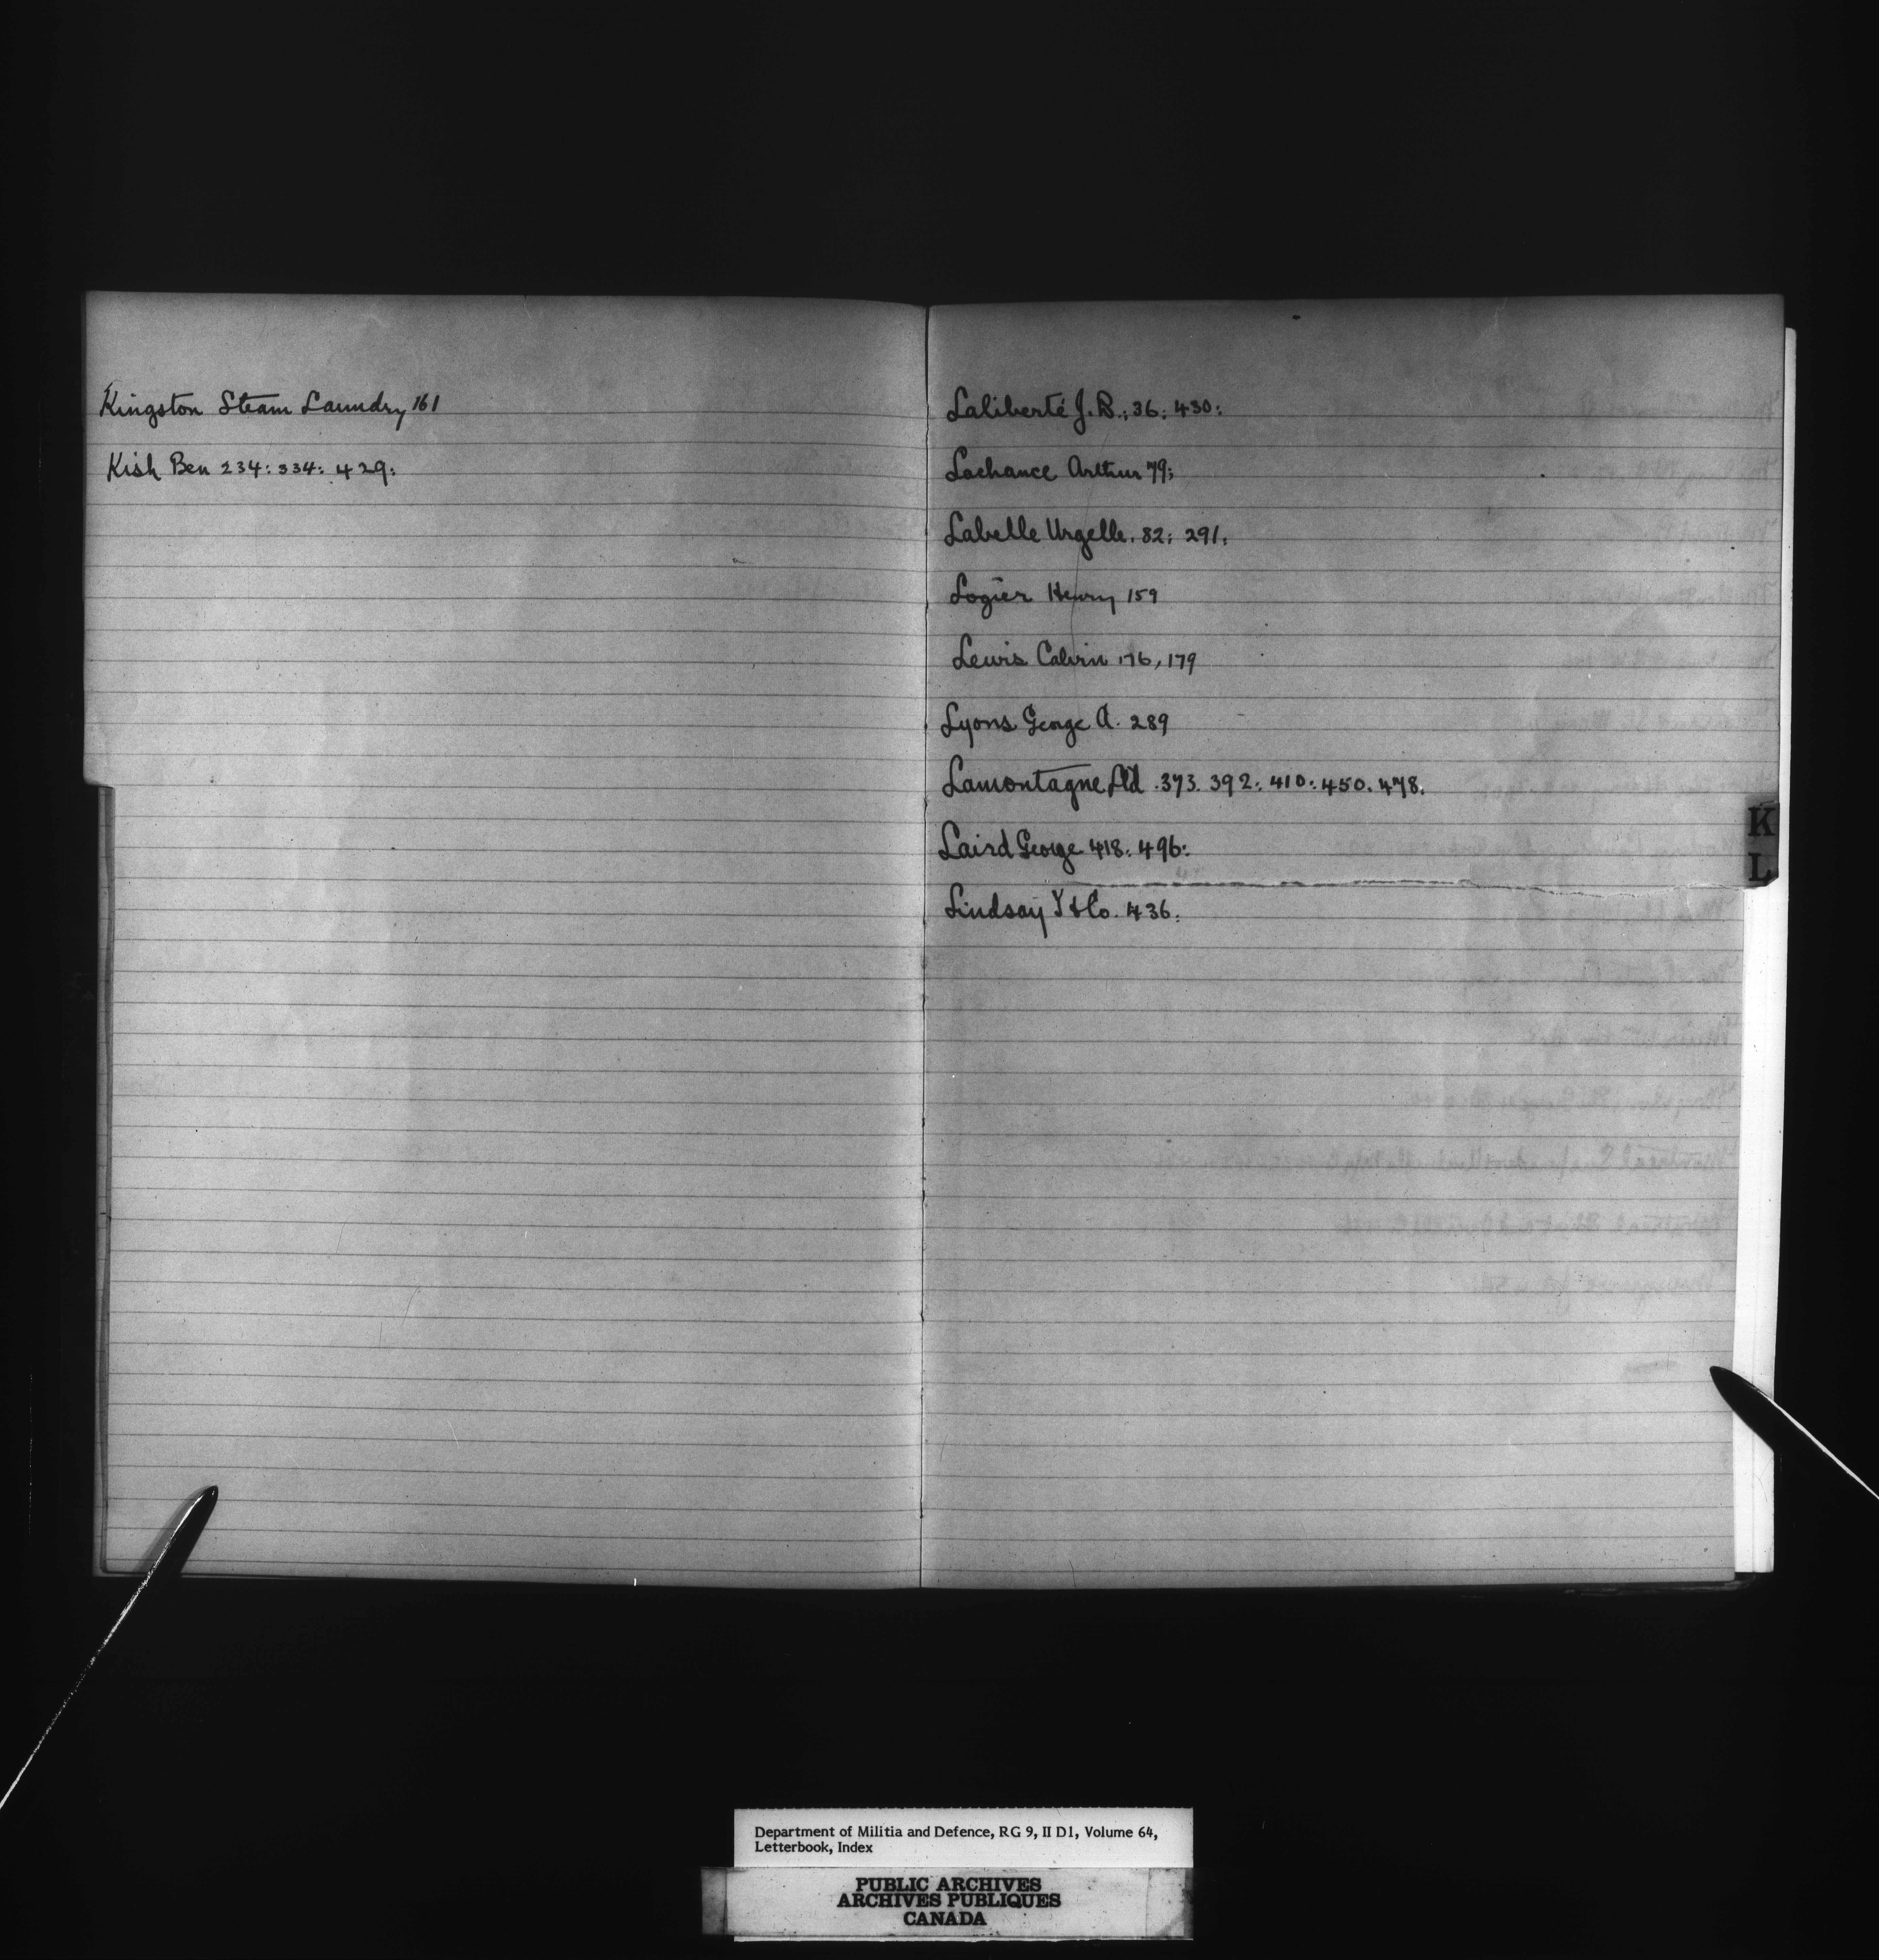 Kingston Steam Laundry 161
Kish Ben 234: 334: 429:
Laliberté J. B.; 36: 430:
Lachance Arthur 79;
Labelle Urgelle. 82: 291:
Logier Henry 159
Lewis Calvin 176, 179
Lyons George A. 289
Lamontagne Ltd. 373. 392: 410: 450. 478.
Laird George 418: 496:
Lindsay & Co. 436:
K
L
Department of Militia and Defence, RG 9, II D1, Volume 64,
Letterbook, Index
PUBLIC ARCHIVES
ARCHIVES PUBLIQUES
CANADA